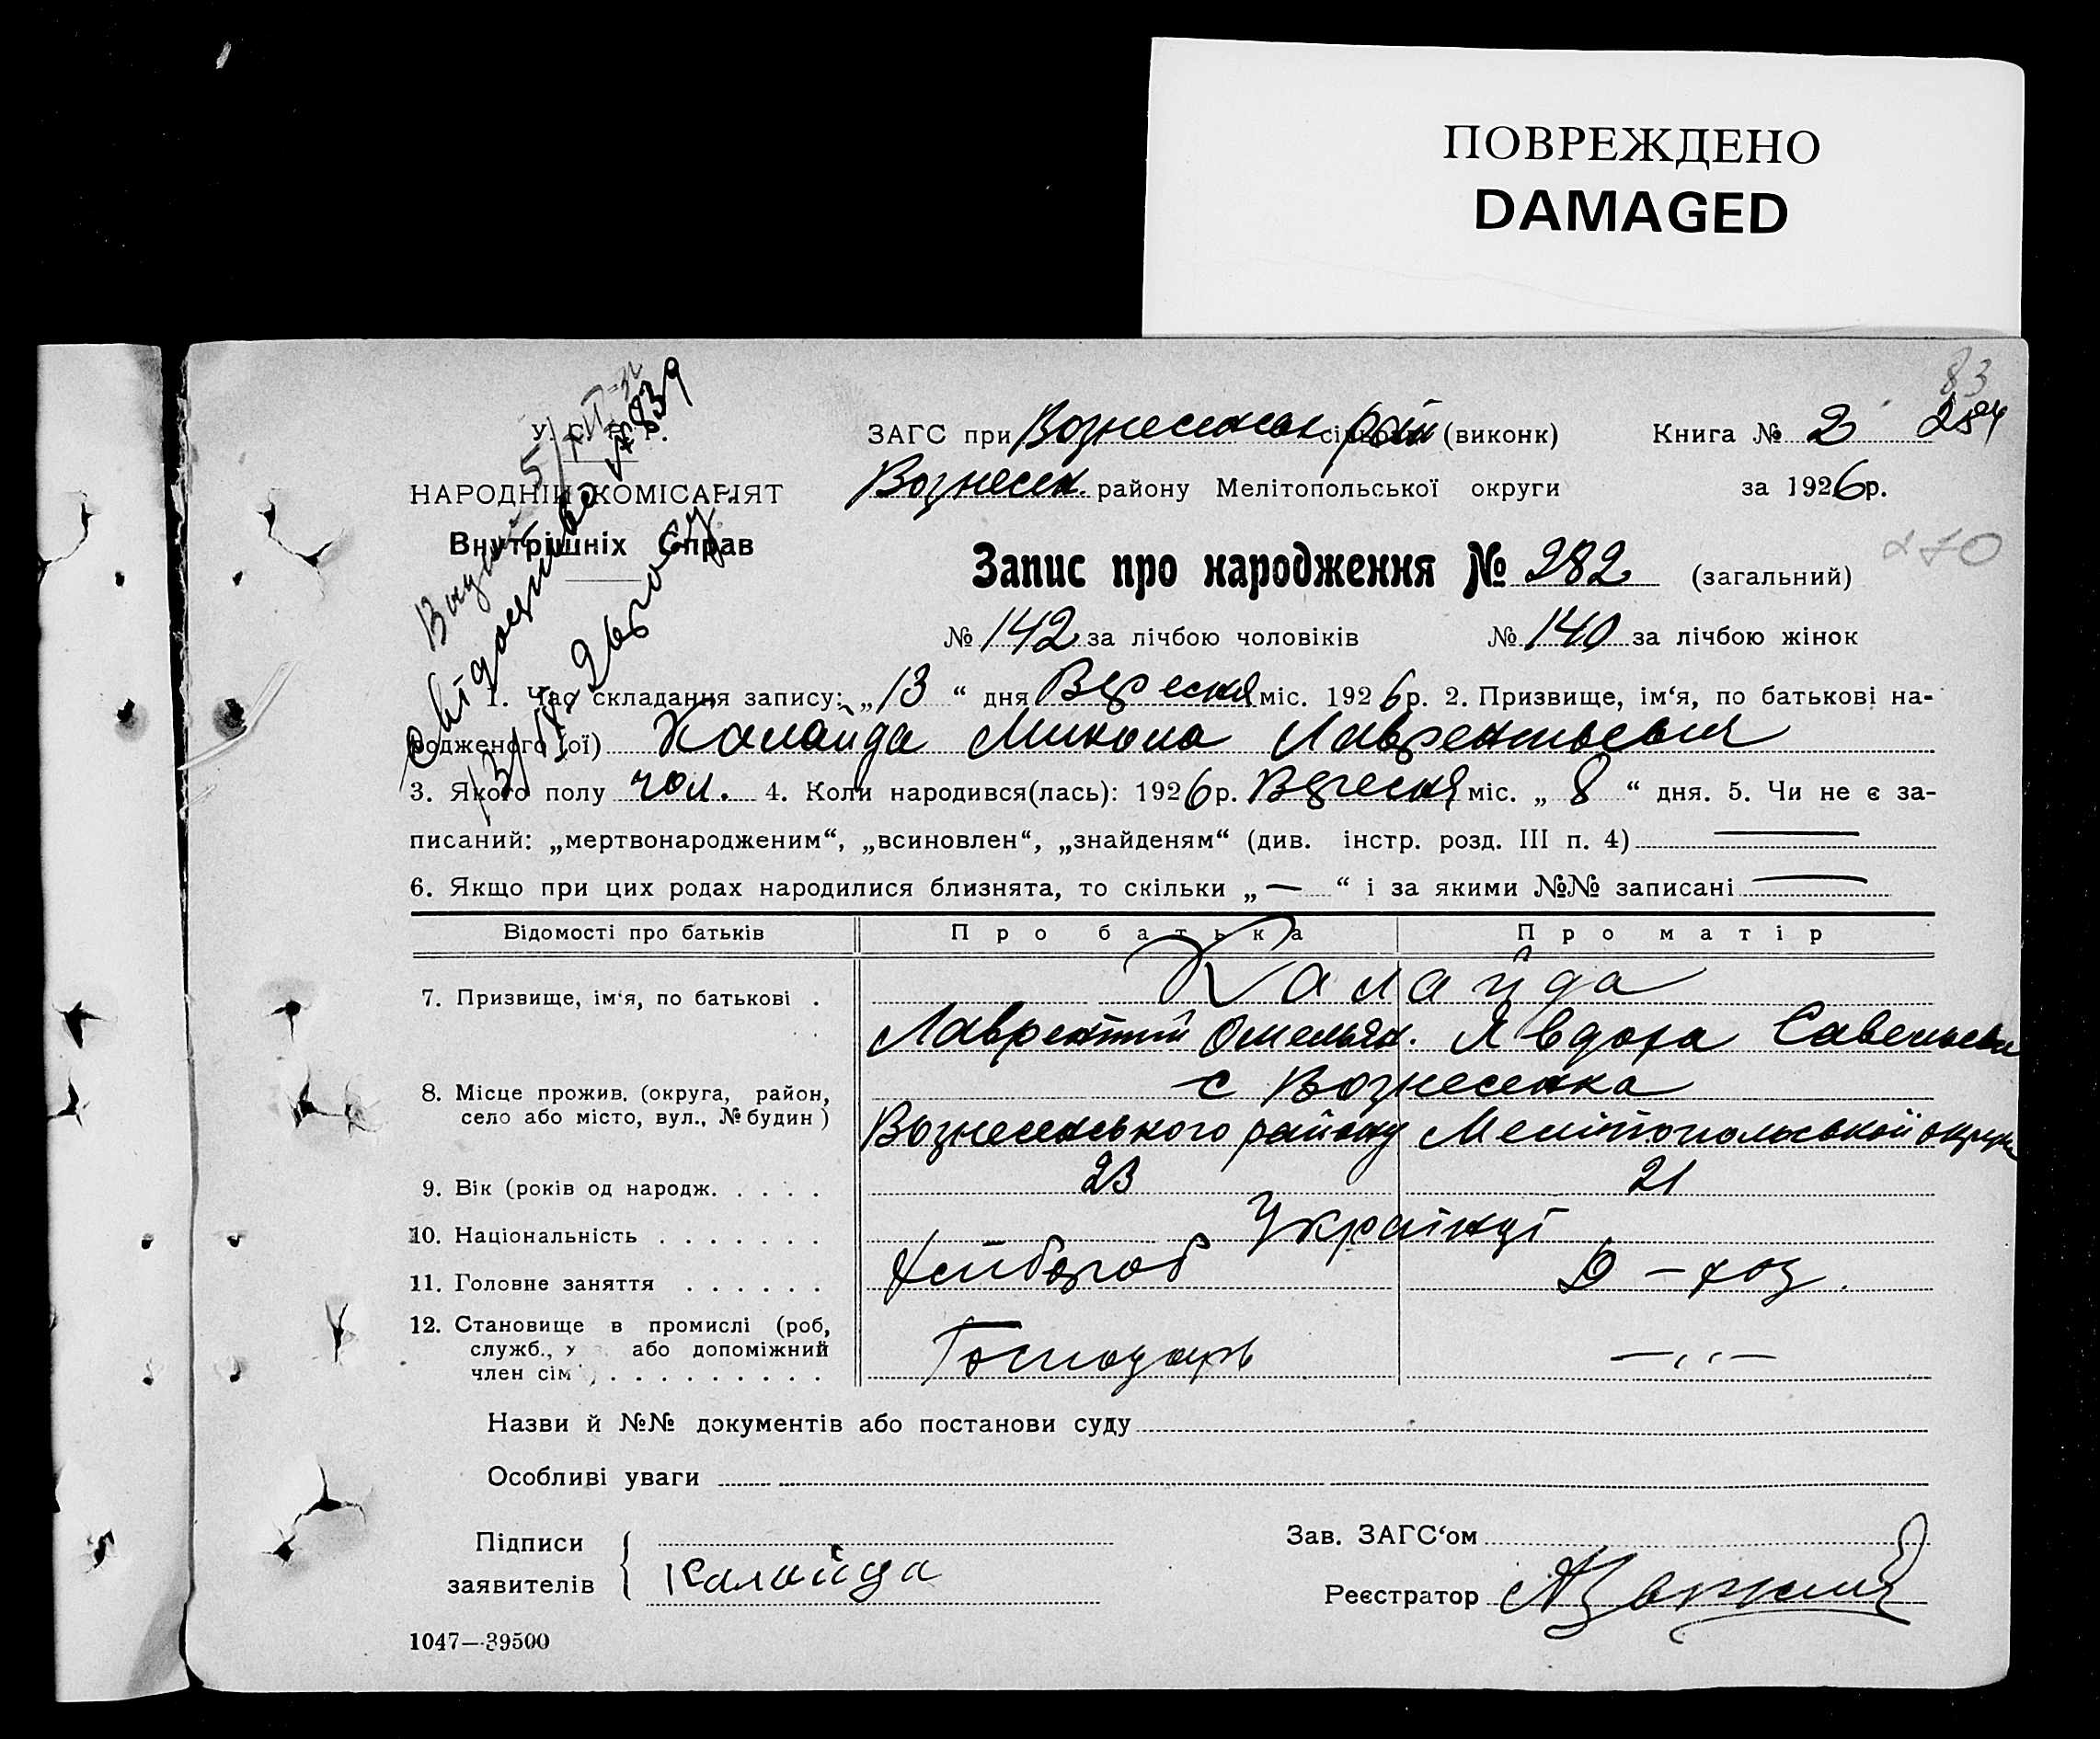 ПОВРЕЖДЕНО
DAMAGED
83
284
ЗАГС при Вознесенськ рай (виконк) Книга № 2
Вознесен. району Мелітопольської округи за 1926р.
НАРОДНІЙ КОМІСАРІЯТ
Внутрішніх Справ
Свідоцтво №839
Запис про народження № 282 (загальний)
№ 142 за лічбою чоловіків № 140 за лічбою жінок
1. Час складання запису: „13“ дня Вересня міс. 1926р. 2. Призвище, ім‘я, по батькові на-
родженого (ої) Калайда Микола Лаврентьевич
3. Якого полу чол. 4. Коли народився(лась): 1926р. Вересня міс. „8“ дня. 5. Чи не є за-
писаний: „мертвонародженим“, „всиновлен“, „знайденям“ (див. інстр. розд. III п. 4) —
6. Якщо при цих родах народилися близнята, то скільки „—“ і за якими №№ записані —
Відомості про батьків Про батька Про матір
7. Призвище, ім‘я, по батькові . Калайда
Лаврентій Омельян. Явдоха Савельевн
8. Місце прожив. (округа, район, с Вознесенка
село або місто, вул., № будин) Вознесенського району Мелітопольськой округи
9. Вік (років од народж. . . . . 23 21
10. Національність . . . . . . . Українці
11. Головне заняття . . . . . . Хлібороб Д-хоз.
12. Становище в промислі (роб,
служб., або допоміжний Господарь —‚‚—
член сім . . . . . . . . . .
Назви й №№ документів або постанови суду
Особливі уваги
Підписи Зав. ЗАГС‘ом
заявителів Калайда Реєстратор
1047—39500